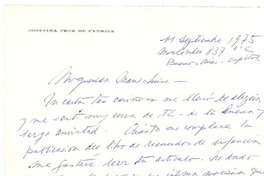 JOSEFINA CRUZ DE CAPRILE
11 Septiembre 1975
Montevideo 837 1º C
Buenos Aires - Capital
Mi querida María Luisa -
Tu carta tan cariñosa me llenó de alegría
y me sentí muy cerca de ti - de tu buena y
larga amistad. Cuánto me complace la
publicación del libro de recuerdos de infancia
Me gustaría leer tu artículo. No dudo